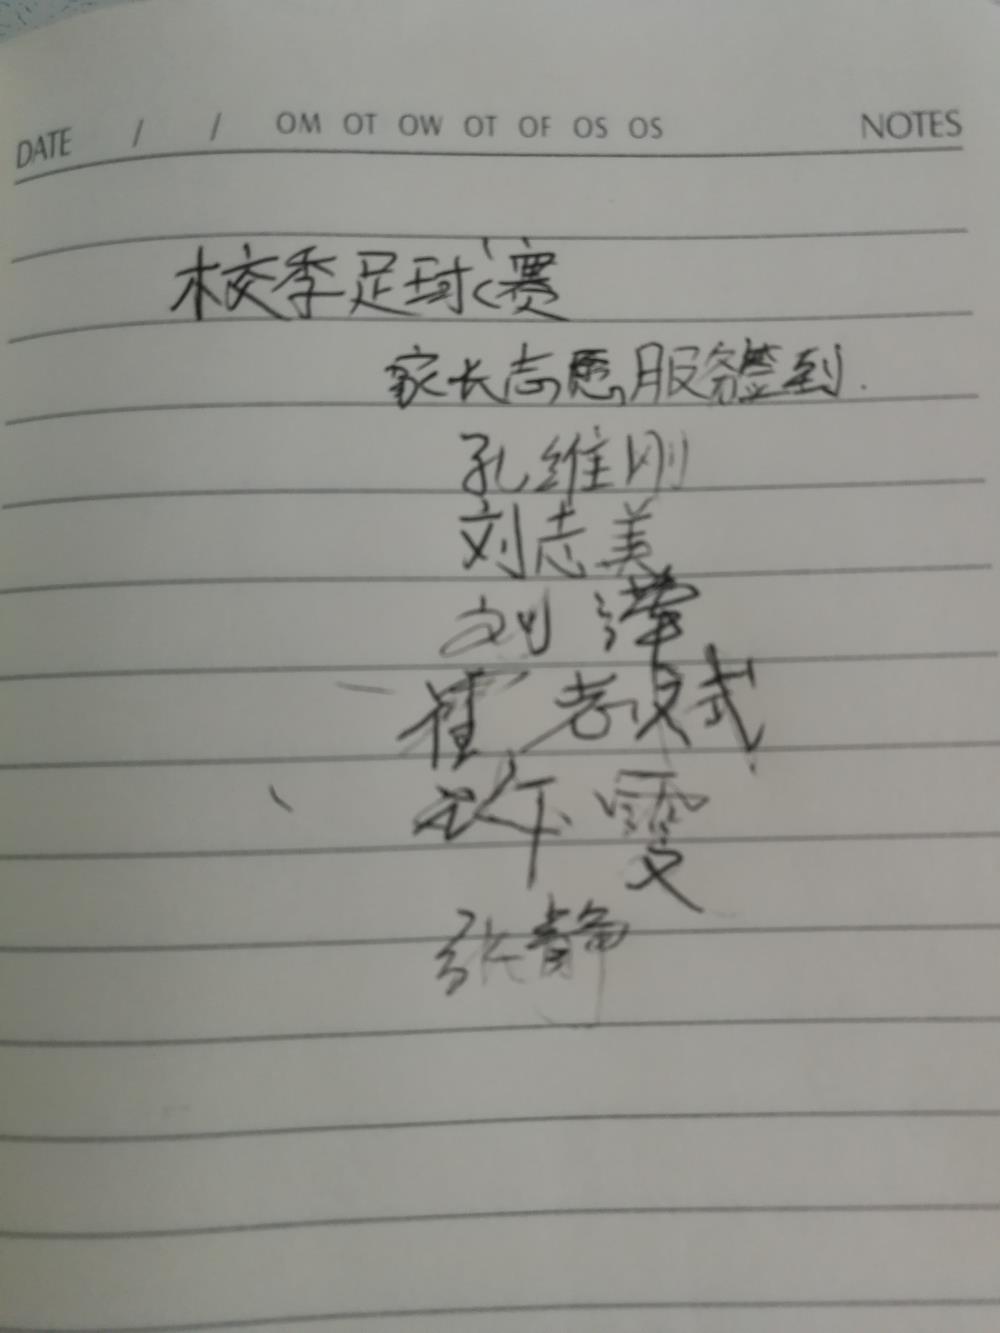 DATE / / OM OT OW OT OF OS OS NOTES
校季足球赛
家长志愿服务签到.
孔维刚
刘志美
刘
崔
许雯
张静